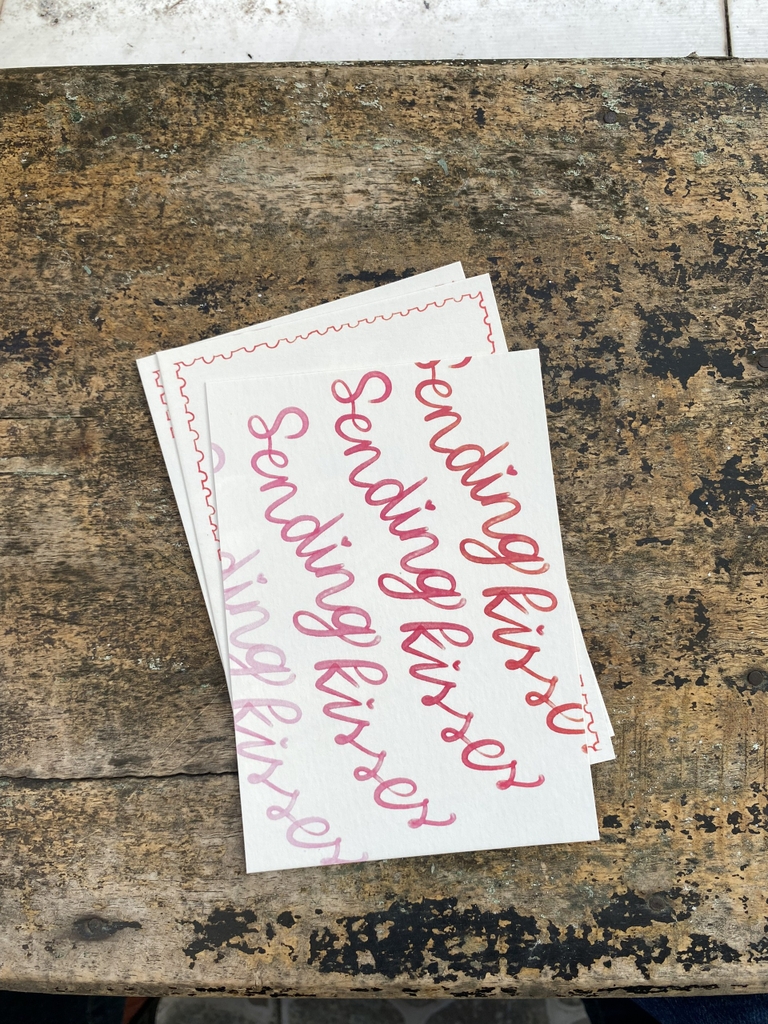 Sending kisses
Sending kisses
Sending kisses
ding kisses